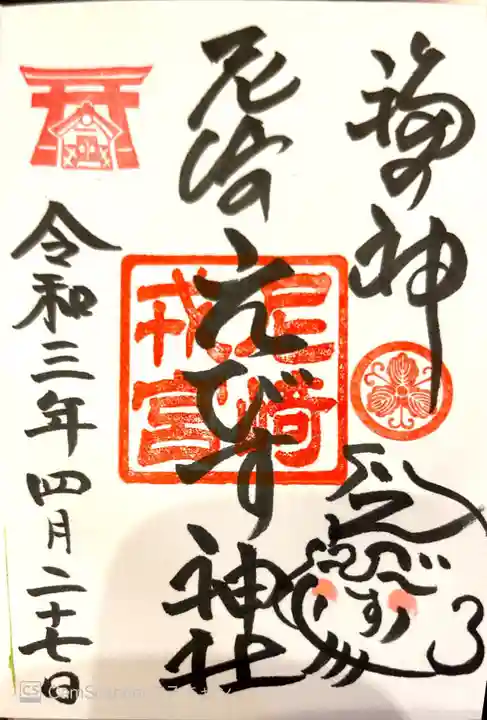 福の神
尼崎えびす神社
尼崎
戎宮
えびす
令和三年四月二十七日
CS CamScanner